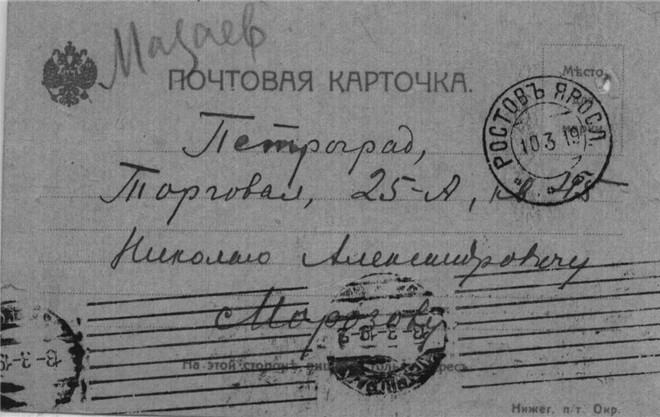 Мазаев
ПОЧТОВАЯ КАРТОЧКА.
Мѣсто
РОСТОВЪ ЯРОСЛ.
10.3 19
Петроград,
Торговая, 25-А, кв.
Николаю Александровичу
Морозову
13-3-19
На этой сторонѣ
Нижег. п/т. Окр.